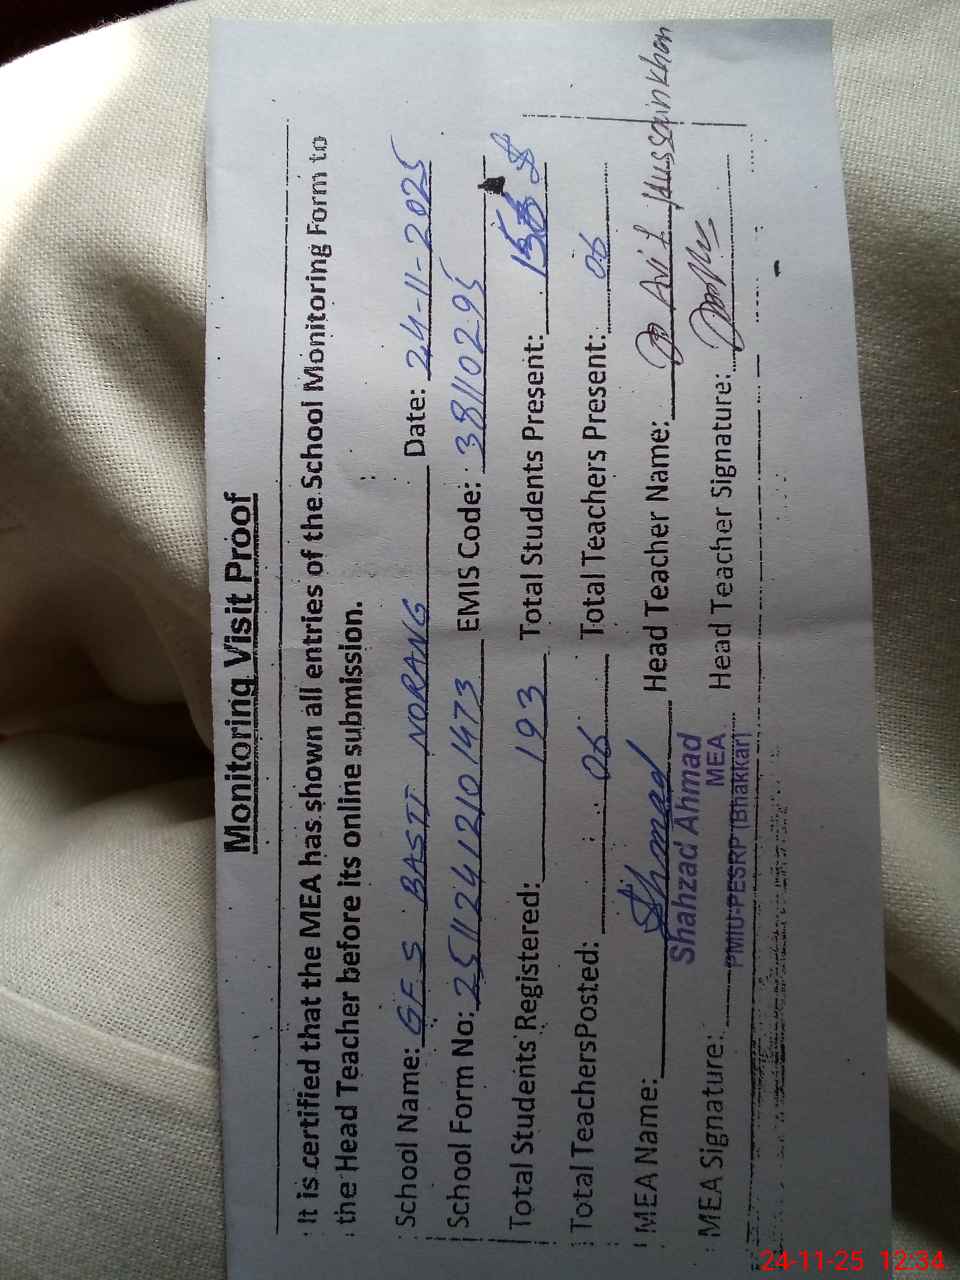 Monitoring Visit Proof
It is certified that the MEA has shown all entries of the School Monitoring Form to
the Head Teacher before its online submission.
School Name: GES BASTI NORANG Date: 24-11-2025
School Form No: 25112412101473 EMIS Code: 38110295
Total Students Registered: 193 Total Students Present:
Total Teachers Posted: 06 Total Teachers Present: 06
MEA Name: Ahmad Head Teacher Name: Hussain Khan
Shahzad Ahmad
MEA
MEA Signature: Head Teacher Signature:
PMIU-PESRP (Bhakkar)
24-11-25 12:34